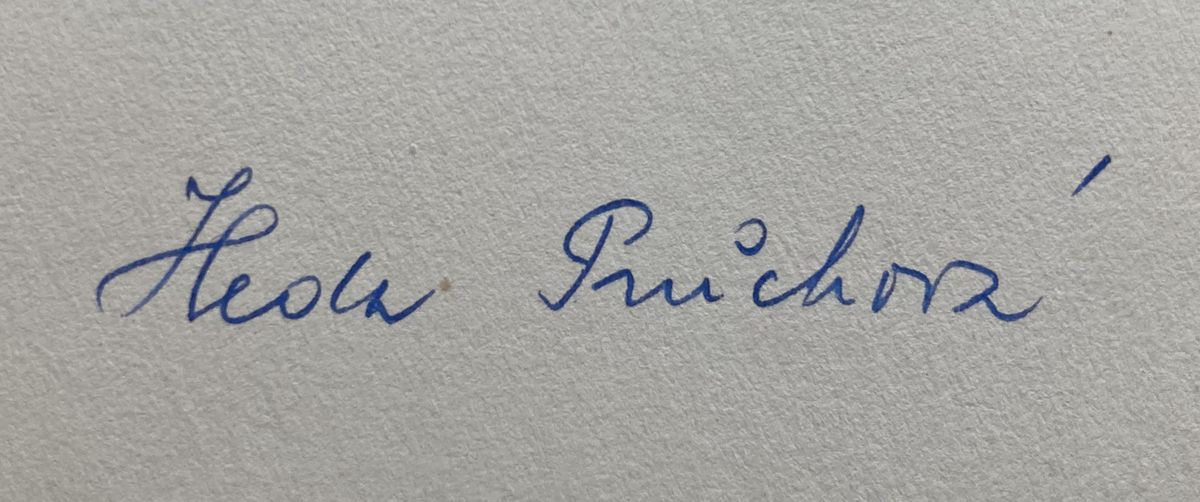 Heda Průchová